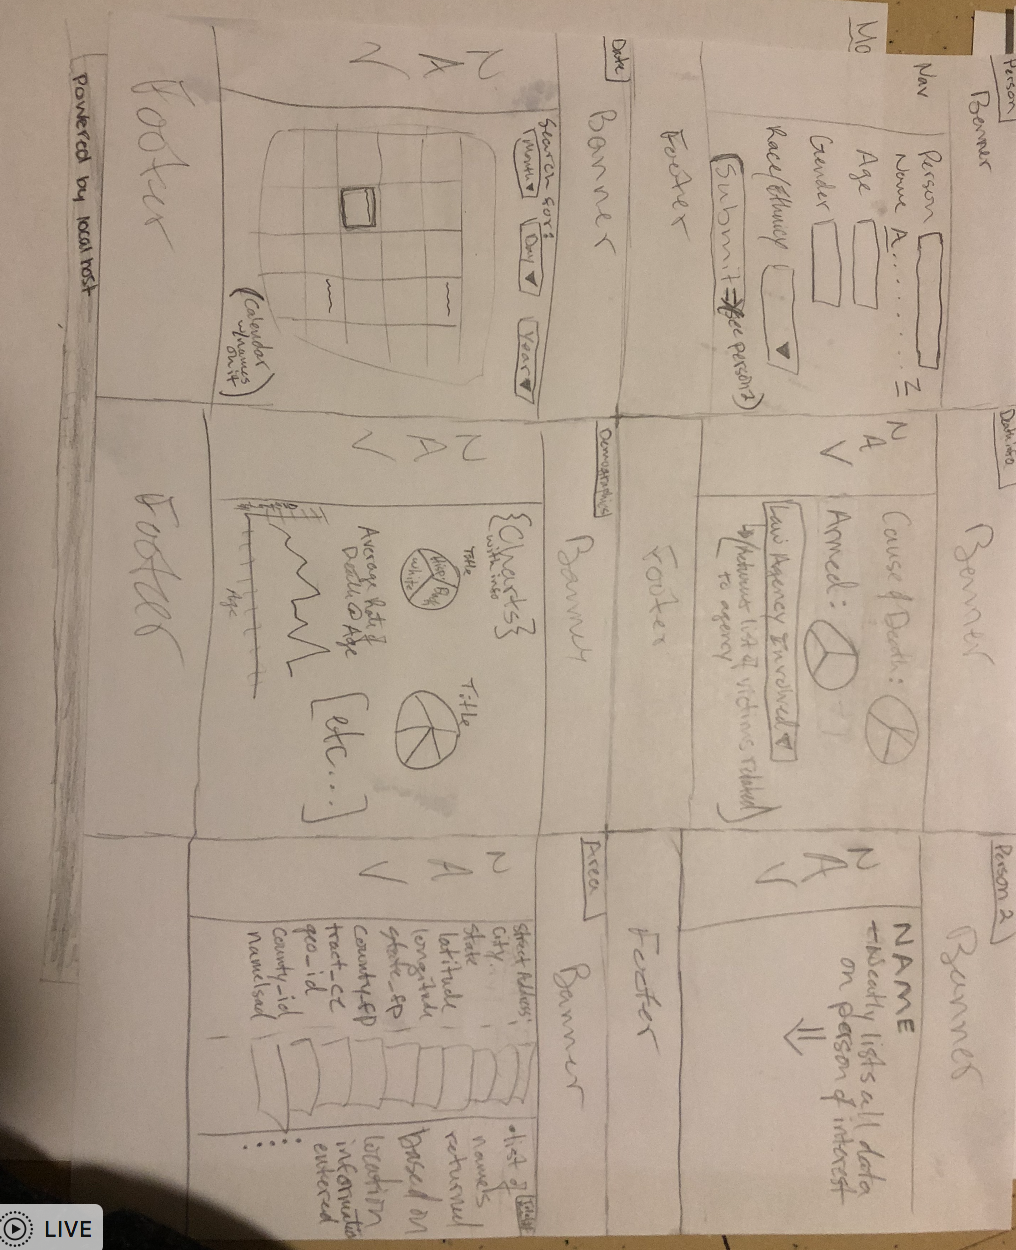 Mo
Person
Banner
Nav
Person
Name A.......Z
Age
Gender
Race/Ethnicity
Submit
(see person 2)
Footer
Data info
Banner
N
A
V
Cause of Death:
Armed:
Law Agency Involved
to agency
Footer
Person 2
Banner
N
A
V
NAME
Neatly lists all data
on person of interest
Footer
Date
Banner
N
A
V
Search for:
Month
Day
Year
(Calendar
w/names
on it)
Footer
Demographics
Banner
N
A
V
{Charts}
with info
Title
White
Title
Average Rate of
Death @ Age
[etc...]
Age
Footer
Area
Banner
N
A
V
Street Address:
City
State
latitude
longitude
state_fp
county_fp
tract_ce
geo_id
county_id
namelsad
• list of
names
returned
based on
location
information
entered
Powered by local host
LIVE